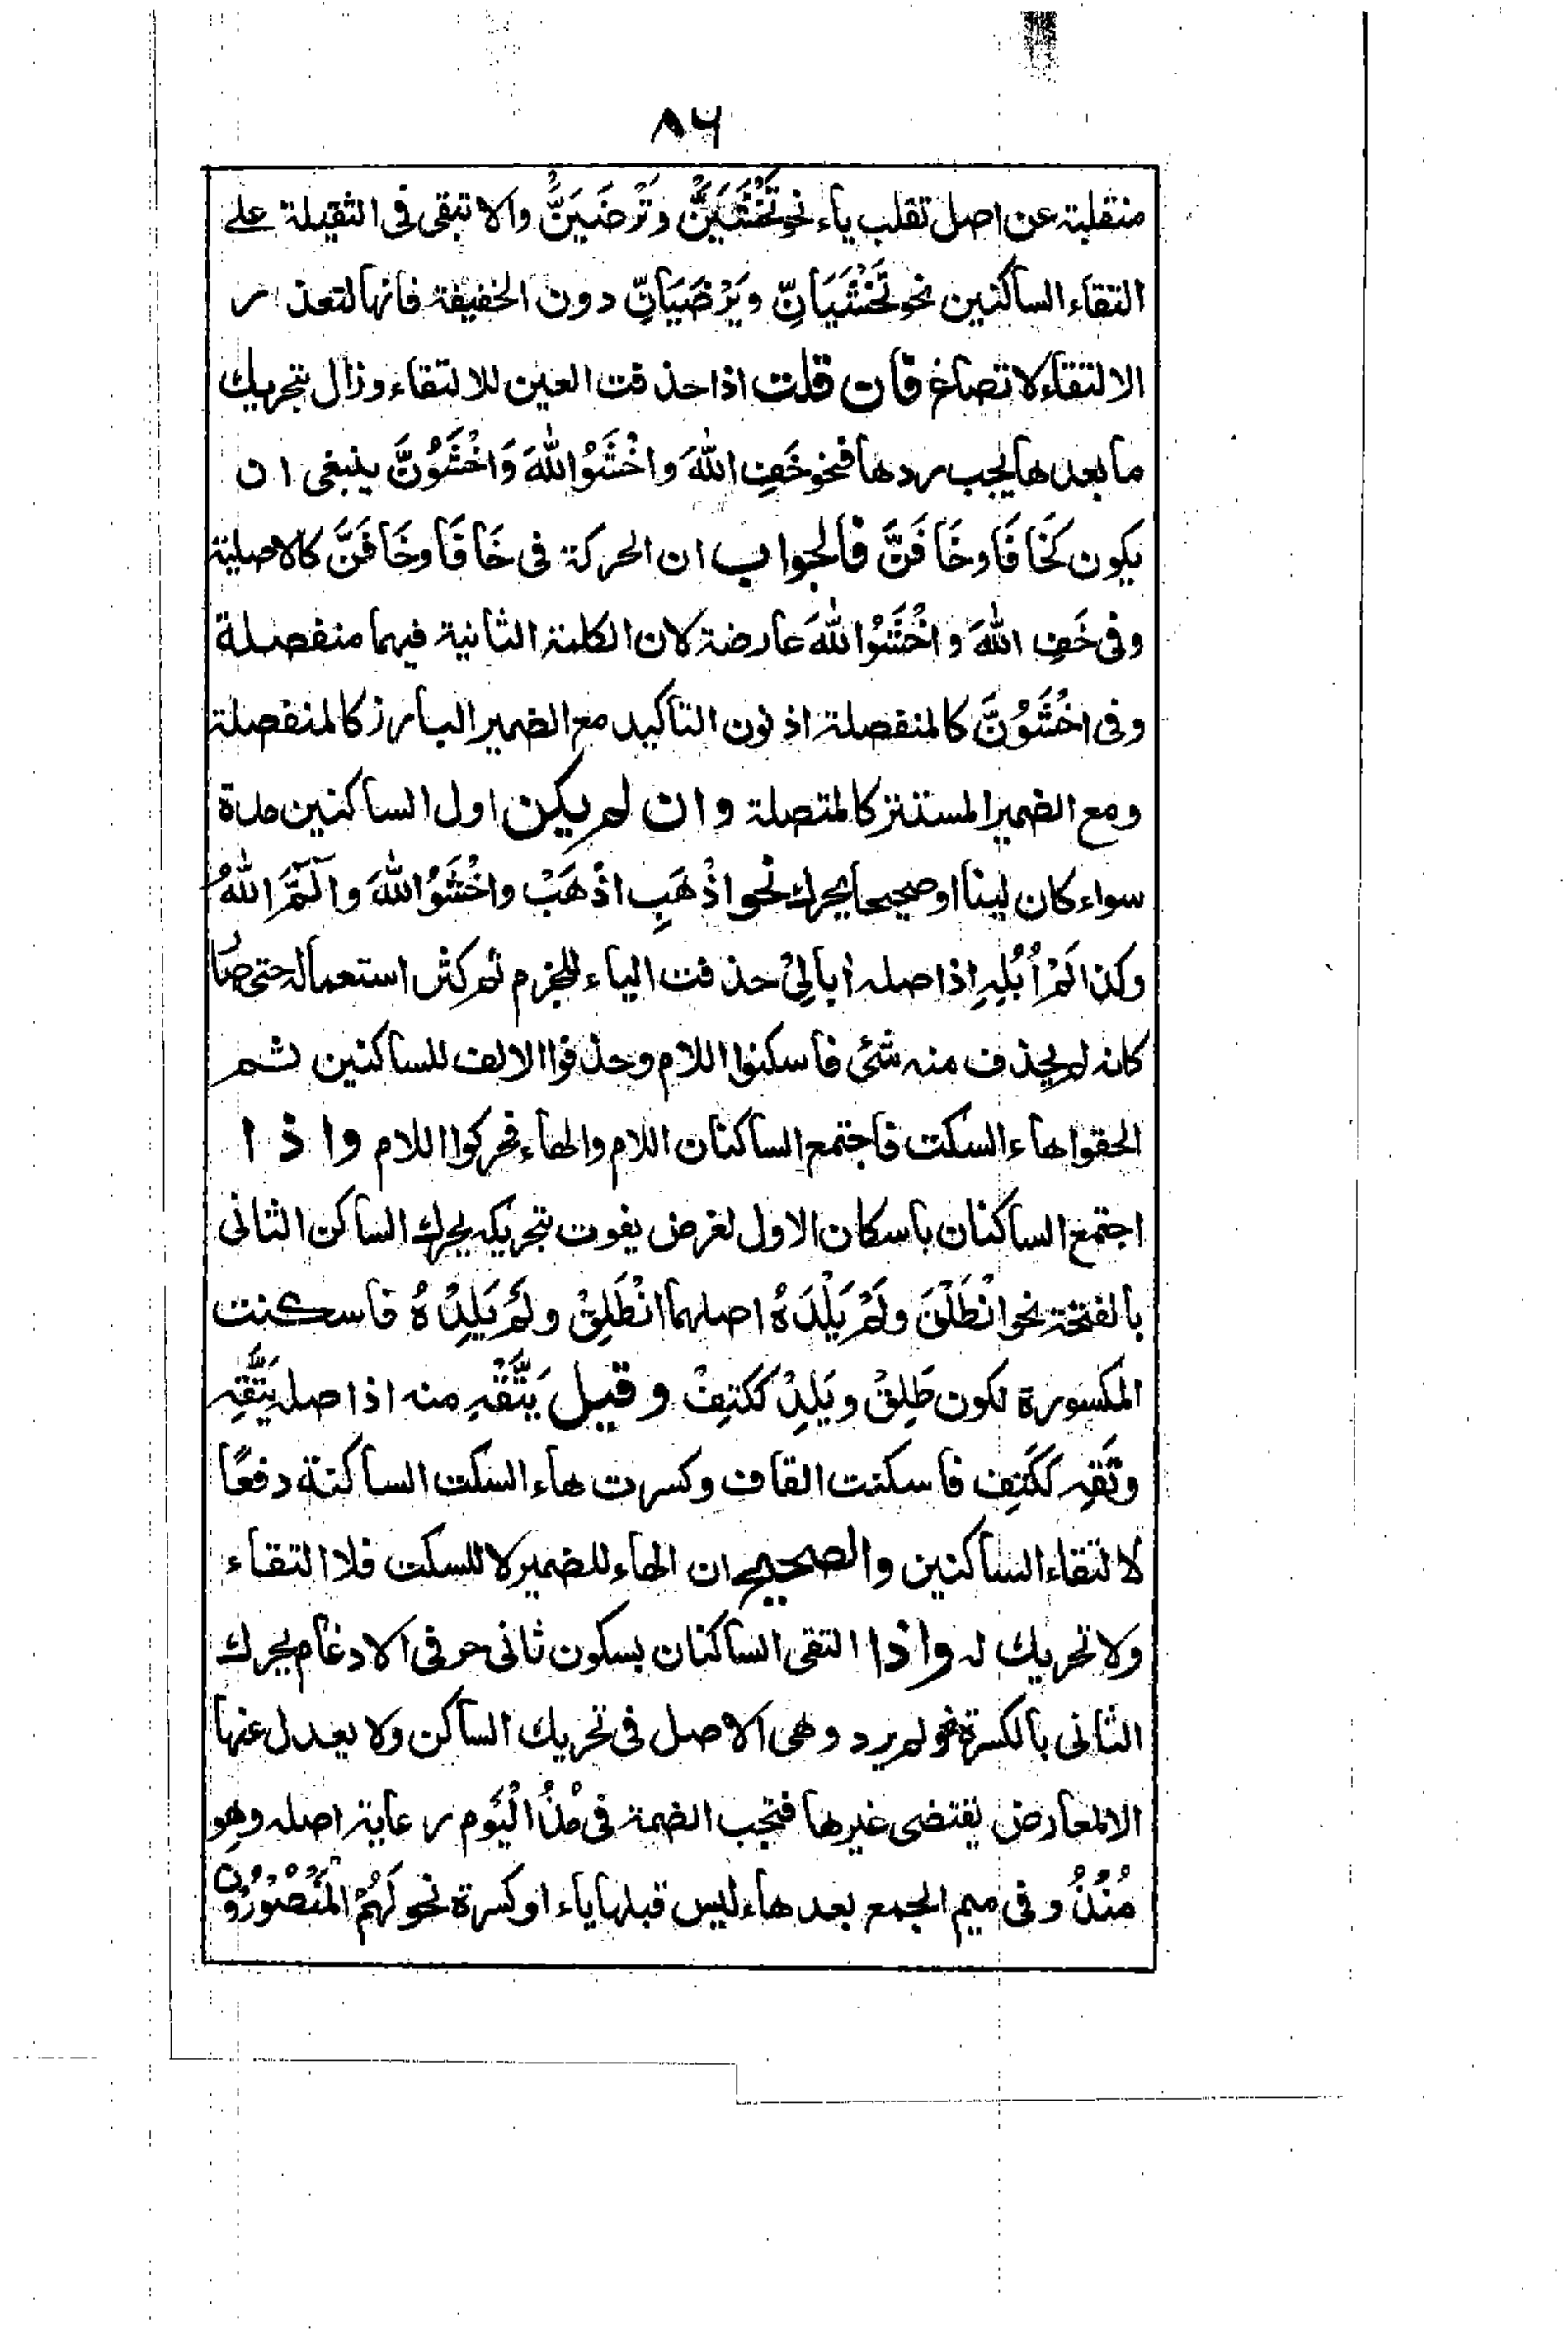 ٨٦
منقلبة عن اصل تقلب ياء نحو تَخْشَيَنَّ وَتَرْضَيَنَّ والا تبقى فى الثقيلة على
التقاء الساكنين نحو تَخْشَيَانِّ ويَرْضَيَانِّ دون الخفيفة فانها لتعذر
الالتقاء لا تصاغ فان قلت اذا حذفت العين للالتقاء وزال بتحريك
ما بعدها يجب ردها فنحو خَفِ اللهَ واخْشَوُا اللهَ وَاخْشَوُنَّ ينبغى ان
يكون كَخَافَا وخَافَنَّ فالجواب ان الحركة فى خَافَا وخَافَنَّ كالاصلية
وفى خَفِ اللهَ واخْشَوُا اللهَ عارضة لان الكلمة الثانية فيهما منفصلة
وفى اخْشَوُنَّ كالمنفصلة اذ نون التاكيد مع الضمير البارز كالمنفصلة
ومع الضمير المستتر كالمتصلة وان لم يكن اول الساكنين مدة
سواء كان لينا او صحيحا يحرك نحو اذْهَبِ اذْهَبْ واخْشَوُا اللهَ والٓمَّ اللهُ
وكذا لَمْ اُبَلِهِ اذ اصله اُبَالِيْ حذفت الياء للجزم ثم كثر استعماله حتى صار
كانه لم يحذف منه شئ فاسكنوا اللام وحذفوا الالف للساكنين ثم
الحقوا هاء السكت فاجتمع الساكنان اللام والهاء فحركوا اللام واذا
اجتمع الساكنان باسكان الاول لغرض يفوت بتحريكه يحرك الساكن الثانى
بالفتحة نحو انْطَلْقَ ولَمْ يَلْدَهُ اصلهما انْطَلِقْ ولَمْ يَلِدْهُ فاسكنت
المكسورة لكون طَلِقْ ويَلِدْ كَكَتِفْ وقيل يَتَّقْهِ منه اذ اصله يَتَّقِهْ
وتَقِهِ كَكَتِف فاسكنت القاف وكسرت هاء السكت الساكنة دفعًا
لالتقاء الساكنين والصحيح ان الهاء للضمير لا للسكت فلا التقاء
ولا تحريك له واذا التقى الساكنان بسكون ثانى حرفى الادغام يحرك
الثانى بالكسرة نحو لم يرد وهى الاصل فى تحريك الساكن ولا يعدل عنها
الا لمعارض يقتضى غيرها فتجب الضمة فى مُذُ الْيَوم رعاية اصله وهو
مُنْذُ وفى ميم الجمع بعد هاء ليس قبلها ياء او كسرة نحو لَهُمُ الْمَنْصُورُوْنَ